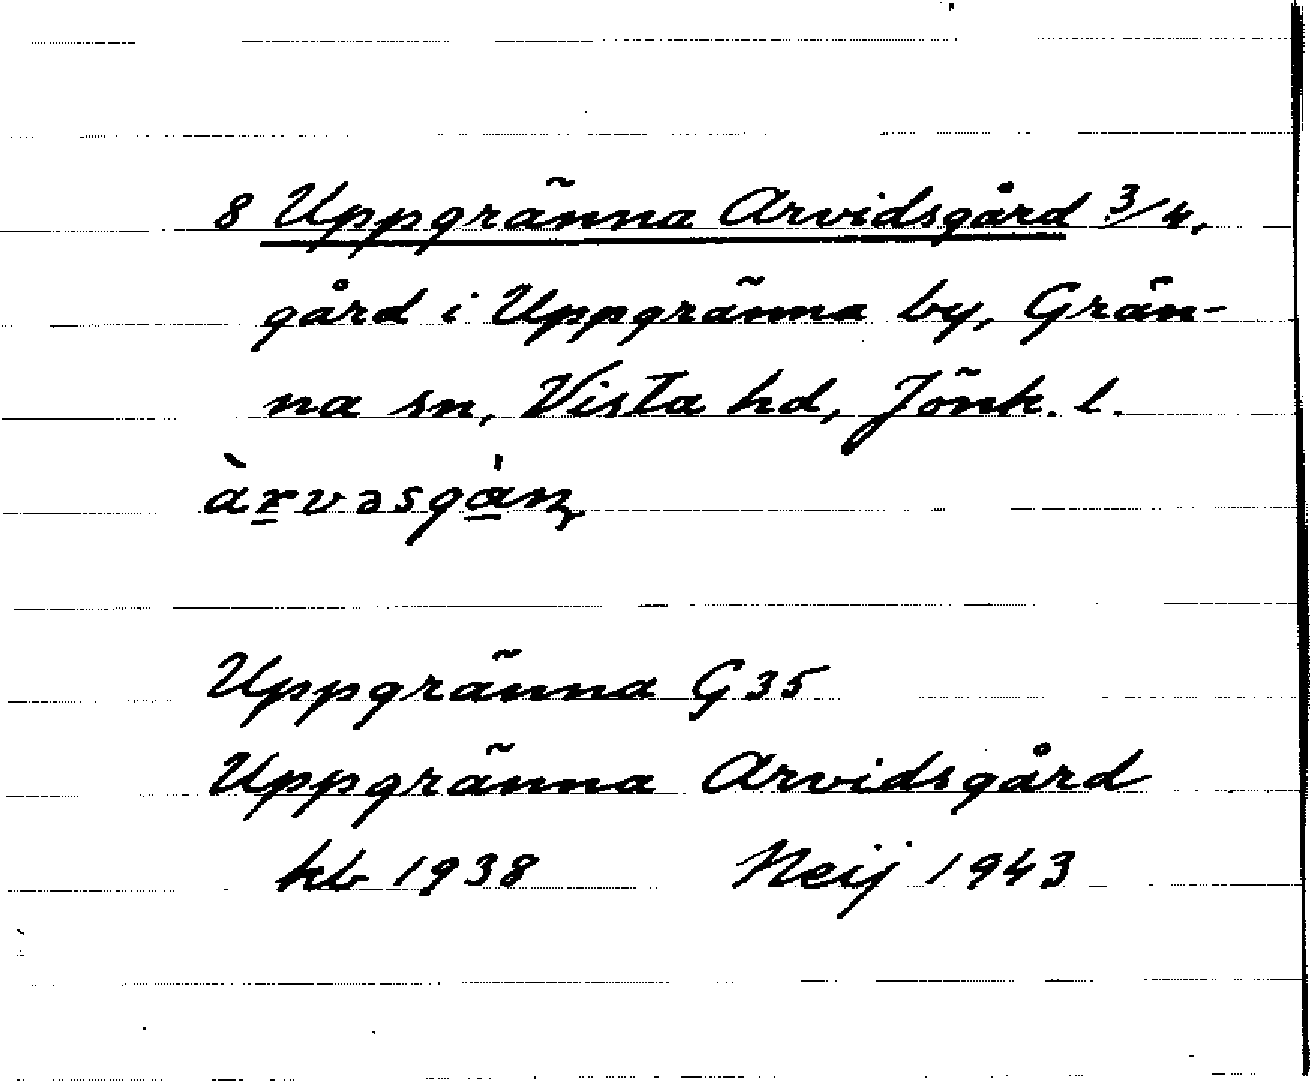 8 Uppgränna Arvidsgård 3/4,
gård i Uppgränna by, Grän-
na sn, Vista hd, Jönk. l.
àrvəsgɑ̀ɳ
Uppgränna G35
Uppgränna Arvidsgård
kb 1938 Neij 1943